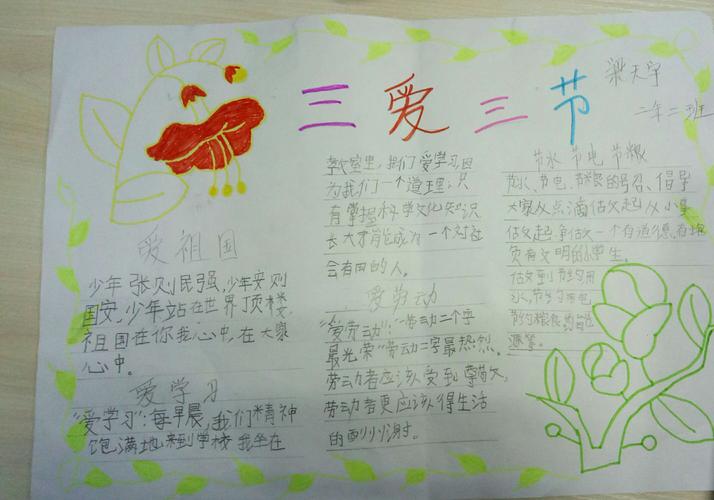 三爱三节
梁天宇
二年二班
爱祖国
少年强则民强,少年安则
国安,少年站在世界顶楼,
祖国在你我心中,在大家
心中。
爱学习
“爱学习”:每早晨,我们精神
饱满地来到学校 我坐在
教室里,我们爱学习,因
为我们一个道理:只
有掌握科学文化知识
长大才能成为一个对社
会有用的人。
爱劳动
“爱劳动”:“劳动二个字
最光荣”劳动二字最热烈。
劳动者应该受到尊敬
劳动者更应该得生活
的
节水 节电 节粮
节水、节电、节粮的号召、倡导
大家从点滴做起从小事
做起争做一个有道德、有
负有文明的小学生。
做到节约用
水,节约用电
节约粮食的